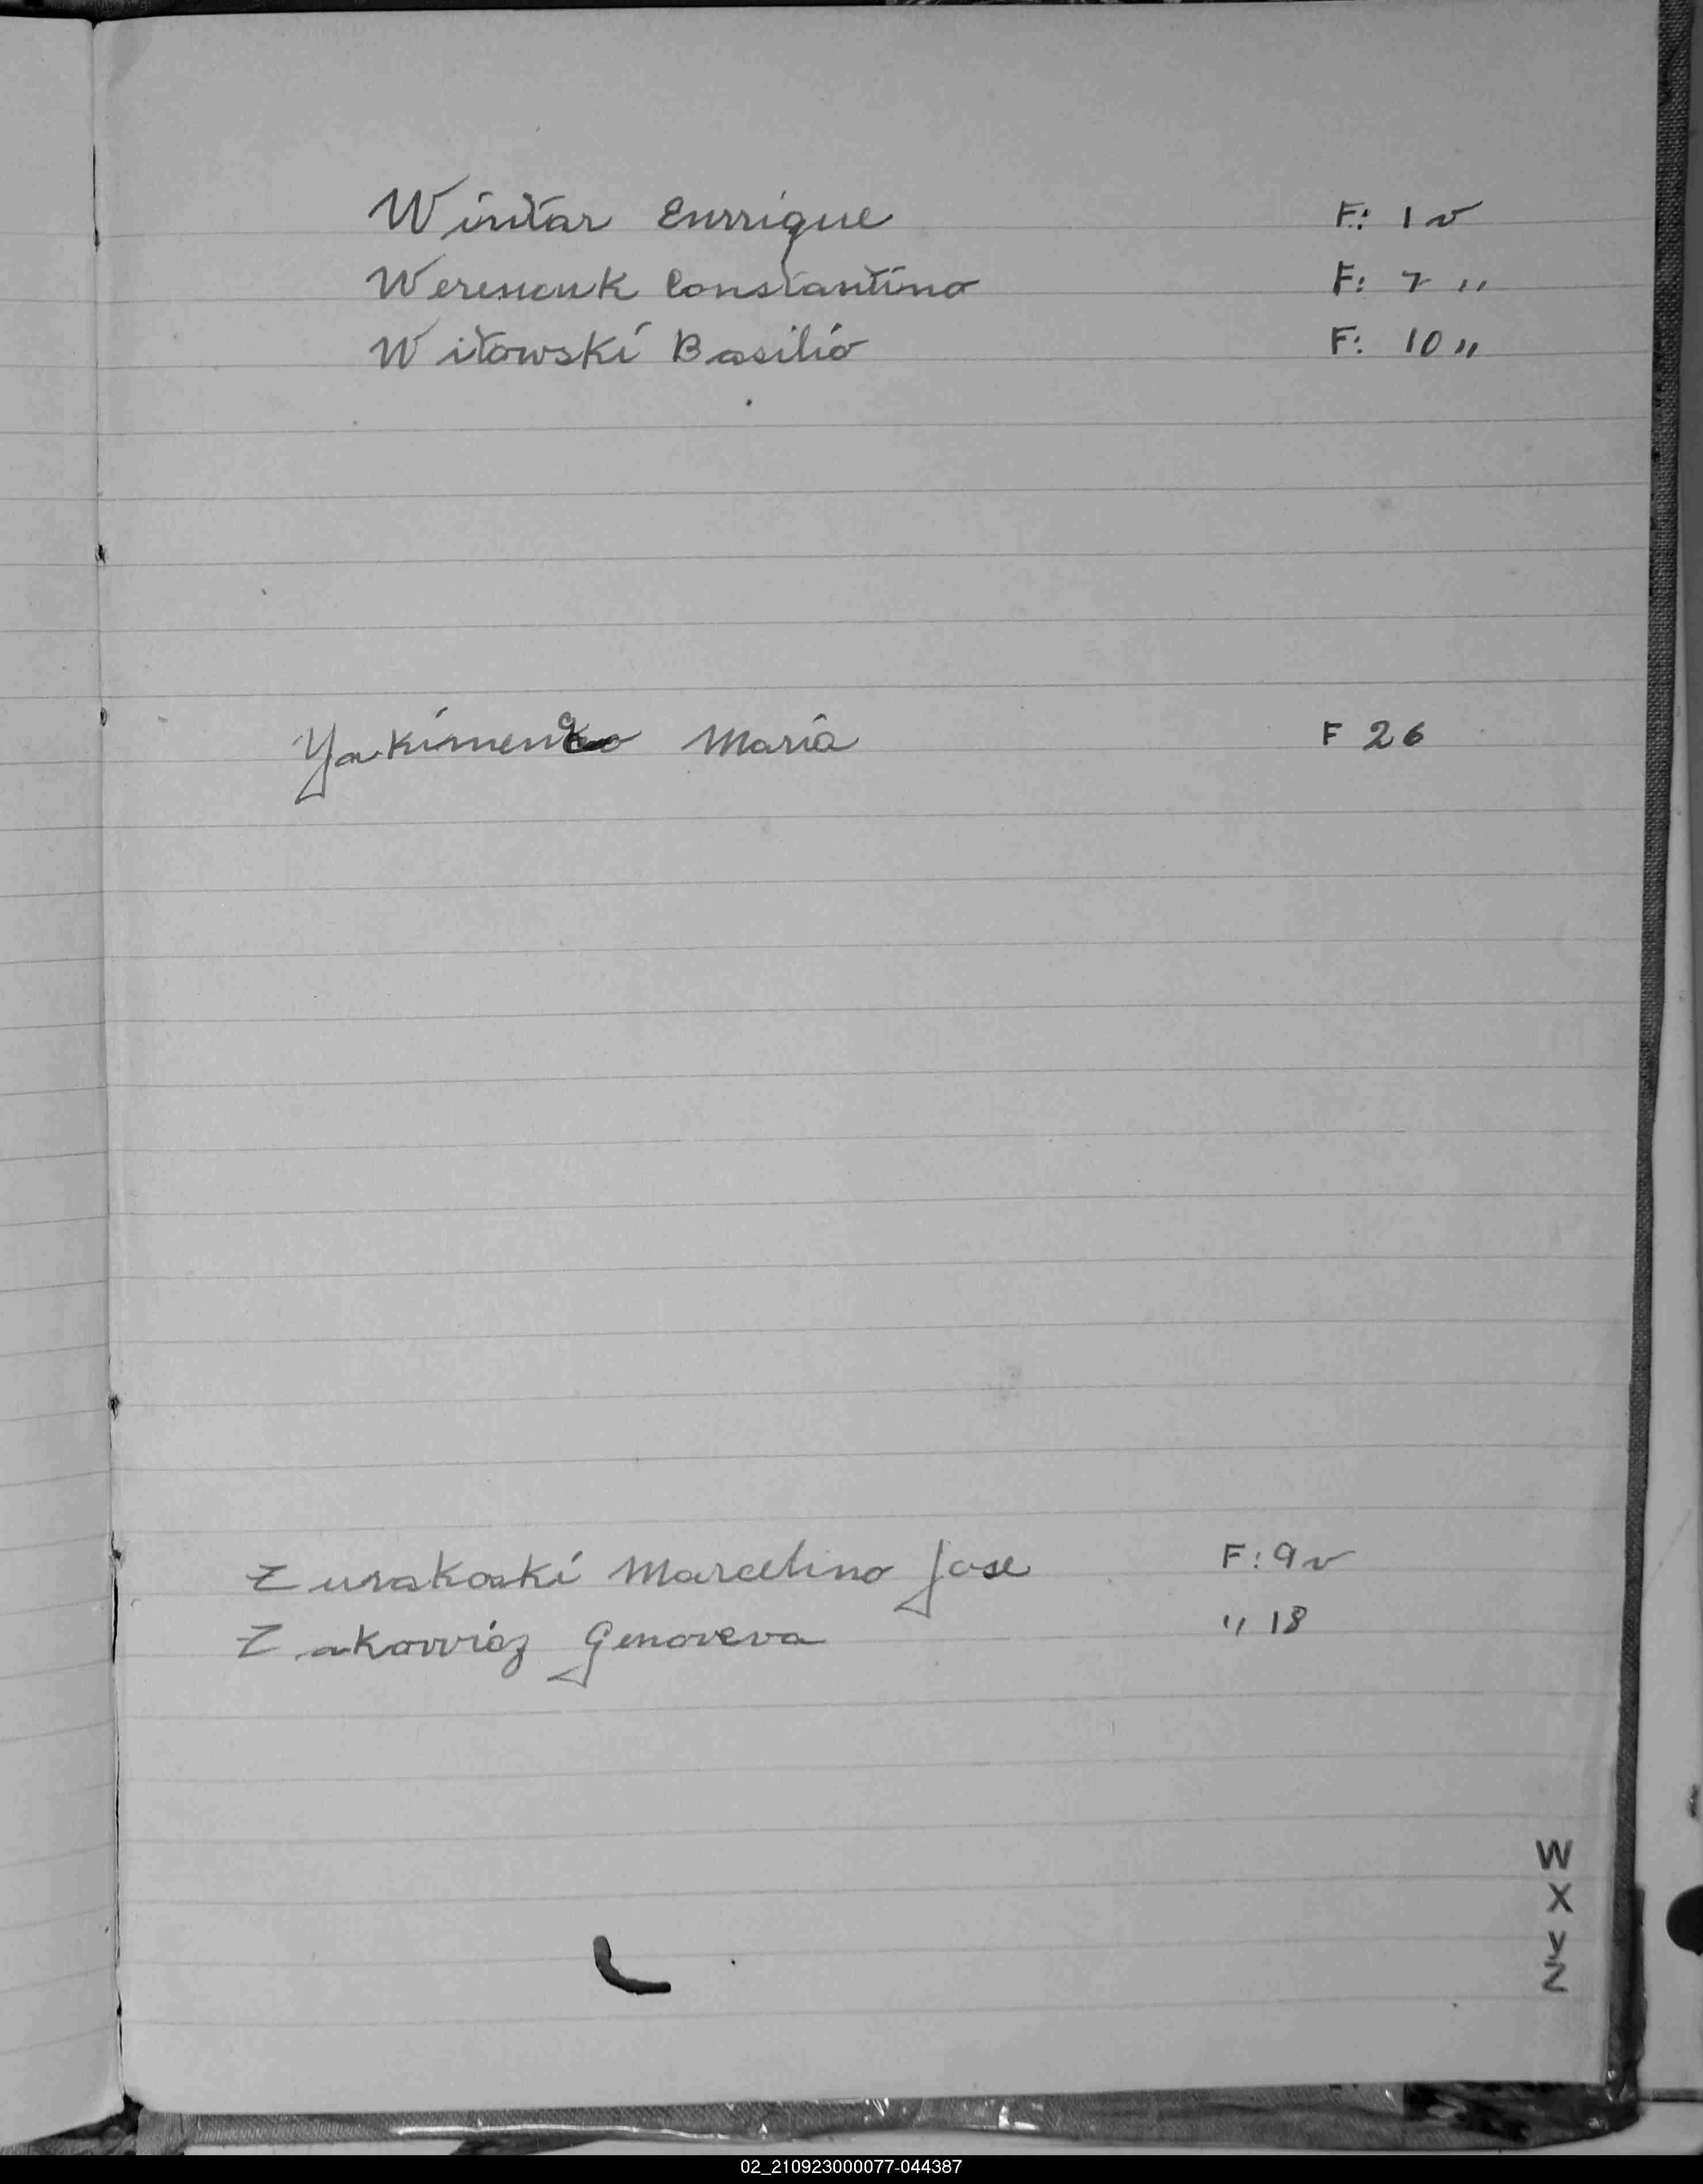 Wintar Enrrique F: 1 v
Werencuk Constantino F: 7 "
Witowski Basilio F: 10 "
Maria F 26
Zurakoski Marcelino Jose F: 9 v
Zakowicz Genoveva " 18
W
X
Y
Z
02_210923000077-044387